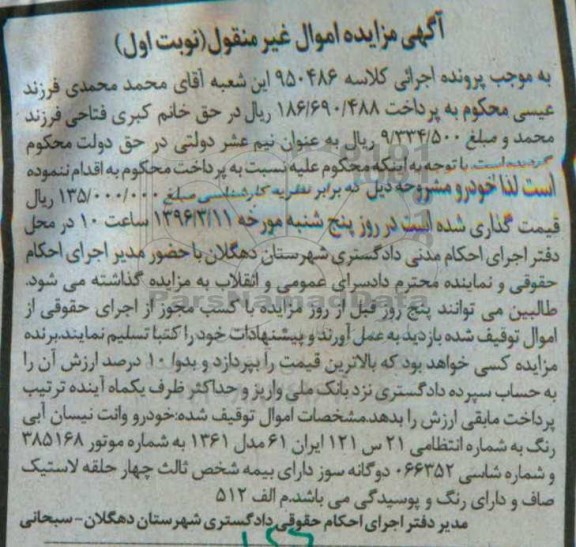 آگهی مزایده اموال غیر منقول(نوبت اول)
به موجب پرونده اجرائی کلاسه ۹۵۰۴۸۶ این شعبه آقای محمد محمدی فرزند
عیسی محکوم به پرداخت ۱۸۶/۶۹۰/۴۸۸ ریال در حق خانم کبری فتاحی فرزند
محمد و مبلغ ۹/۳۳۴/۵۰۰ ریال به عنوان نیم عشر دولتی در حق دولت محکوم
گردیده است. با توجه به اینکه محکوم علیه نسبت به پرداخت محکوم به اقدام ننموده
است لذا خودرو مشروحه ذیل که برابر نظریه کارشناسی مبلغ ۱۳۵/۰۰۰/۰۰۰ ریال
قیمت گذاری شده است در روز پنج شنبه مورخه ۱۳۹۶/۳/۱۱ ساعت ۱۰ در محل
دفتر اجرای احکام مدنی دادگستری شهرستان دهگلان با حضور مدیر اجرای احکام
حقوقی و نماینده محترم دادسرای عمومی و انقلاب به مزایده گذاشته می شود.
طالبین می توانند پنج روز قبل از روز مزایده با کسب مجوز از اجرای حقوقی از
اموال توقیف شده بازدید به عمل آورند و پیشنهادات خود را کتبا تسلیم نمایند.برنده
مزایده کسی خواهد بود که بالاترین قیمت را بپردازد و بدوا ۱۰ درصد ارزش آن را
به حساب سپرده دادگستری نزد بانک ملی واریز و حداکثر ظرف یکماه آینده ترتیب
پرداخت مابقی ارزش را بدهد.مشخصات اموال توقیف شده:خودرو وانت نیسان آبی
رنگ به شماره انتظامی ۲۱ س ۱۲۱ ایران ۶۱ مدل ۱۳۶۱ به شماره موتور ۳۸۵۱۶۸
و شماره شاسی ۰۶۶۳۵۲ دوگانه سوز دارای بیمه شخص ثالث چهار حلقه لاستیک
صاف و دارای رنگ و پوسیدگی می باشد.م الف ۵۱۲
مدیر دفتر اجرای احکام حقوقی دادگستری شهرستان دهگلان- سبحانی
ParsNamadData